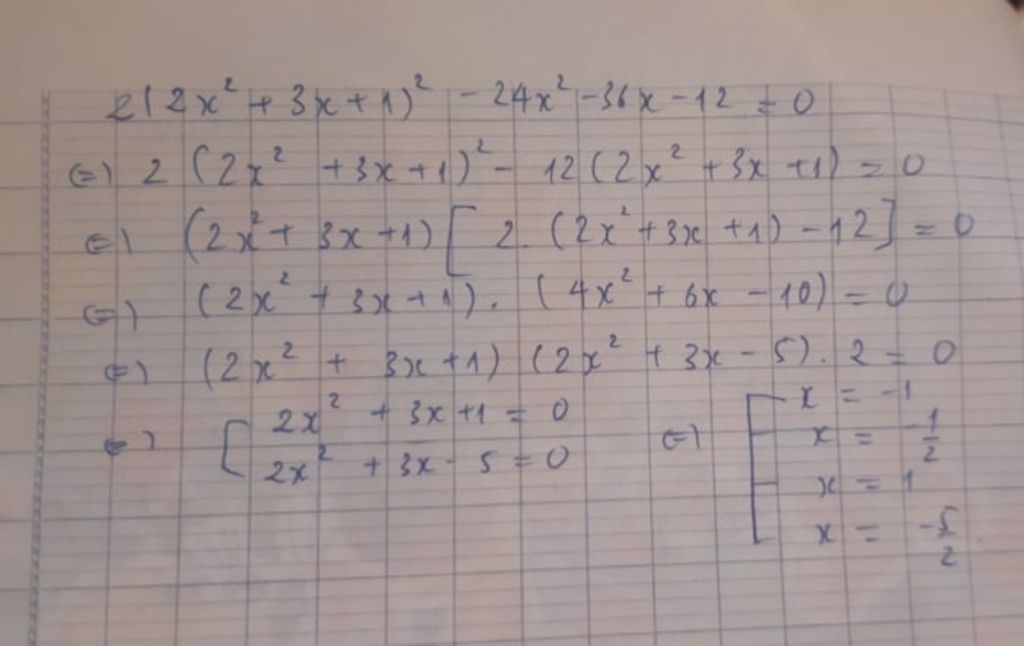 2(2x² + 3x + 1)² - 24x² - 36x - 12 = 0
(=) 2 (2x² + 3x + 1)² - 12 (2x² + 3x + 1) = 0
(=) (2x² + 3x + 1) [ 2. (2x² + 3x + 1) - 12] = 0
(=) (2x² + 3x + 1) . (4x² + 6x - 10) = 0
(=) (2x² + 3x + 1) (2x² + 3x - 5) . 2 = 0
(=) [ 2x² + 3x + 1 = 0
2x² + 3x - 5 = 0
(=) [ x = -1
x = -1/2
x = 1
x = -5/2